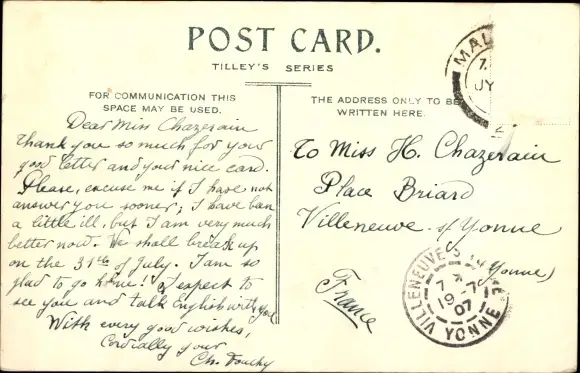 POST CARD.
TILLEY'S SERIES
FOR COMMUNICATION THIS
SPACE MAY BE USED.
Dear Miss Chazerain
Thank you so much for your
good letter and your nice card.
Please, excuse me if I have not
answer you sooner; I have ban
a little ill, but I am very much
better now. We shall break up
on the 31th of July. I am so
glad to go home! I expect to
see you and talk English with you
With every good wishes,
Cordially your
Ch.
THE ADDRESS ONLY TO BE
WRITTEN HERE.
To Miss H. Chazerain
Place Briard
Villeneuve s/ Yonne
(Yonne)
France
MAL
7.
JY
VILLENEUVE
7 7
19 -7
07
YONNE